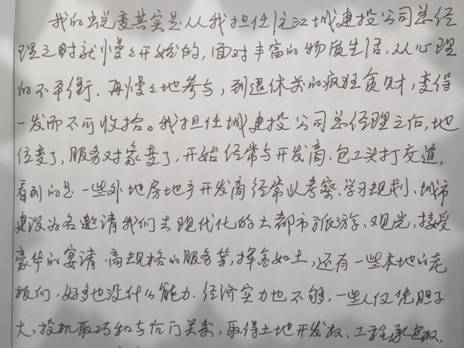 我的蜕变其实是从我担任沅江城建投公司总经
理之时就慢慢开始的，面对丰富的物质生活，从心理
的不平衡，再慢慢地参与，到退休前的疯狂贪财，变得
一发而不可收拾。我担任城建投公司总经理之后，地
位变了，服务对象变了，开始经常与开发商、包工头打交道，
看到的是一些外地房地产开发商经常以考察、学习规划、城市
建设为名邀请我们去现代化的大都市旅游、观光，接受
豪华的宴请、高规格的服务等，挥金如土，还有一些本地的老
板们，好多也没什么能力，经济实力也不够，一些人仅凭胆子
大，投机取巧和与我们关系，取得土地开发权、工程承包权，